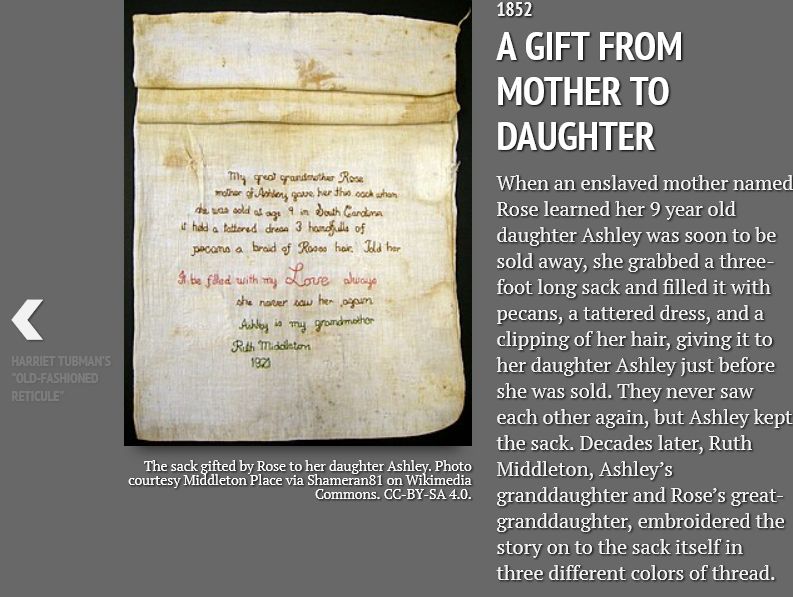 1852
A GIFT FROM
MOTHER TO
DAUGHTER
When an enslaved mother named
Rose learned her 9 year old
daughter Ashley was soon to be
sold away, she grabbed a three-
foot long sack and filled it with
pecans, a tattered dress, and a
clipping of her hair, giving it to
her daughter Ashley just before
she was sold. They never saw
each other again, but Ashley kept
the sack. Decades later, Ruth
Middleton, Ashley’s
granddaughter and Rose’s great-
granddaughter, embroidered the
story on to the sack itself in
three different colors of thread.
My great grandmother Rose
mother of Ashley gave her this sack when
she was sold at age 9 in South Carolina
it held a tattered dress 3 handfulls of
pecans a braid of Roses hair. Told her
It be filled with my Love always
she never saw her again
Ashley is my grandmother
Ruth Middleton
1921
The sack gifted by Rose to her daughter Ashley. Photo
courtesy Middleton Place via Shameran81 on Wikimedia
Commons. CC-BY-SA 4.0.
HARRIET TUBMAN'S
"OLD-FASHIONED
RETICULE"